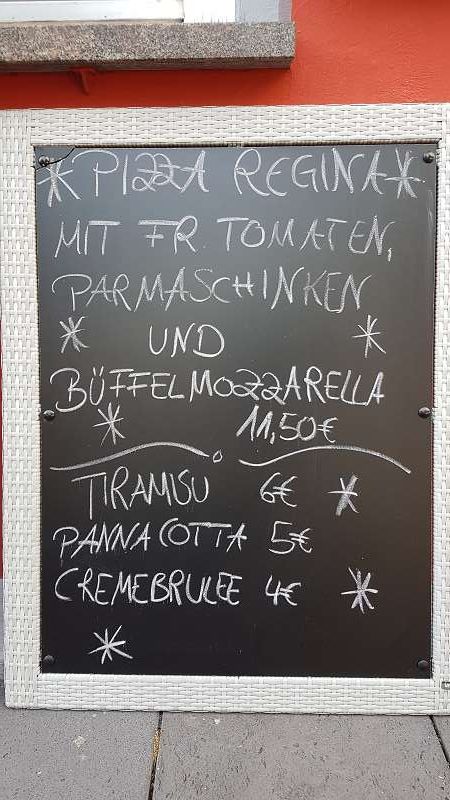 *PIZZA REGINA*
MIT FR. TOMATEN,
PARMASCHINKEN
* UND *
BÜFFELMOZZARELLA
* 11,50€
TIRAMISU 6€ *
PANNACOTTA 5€
CREMEBRULEE 4€ *
*